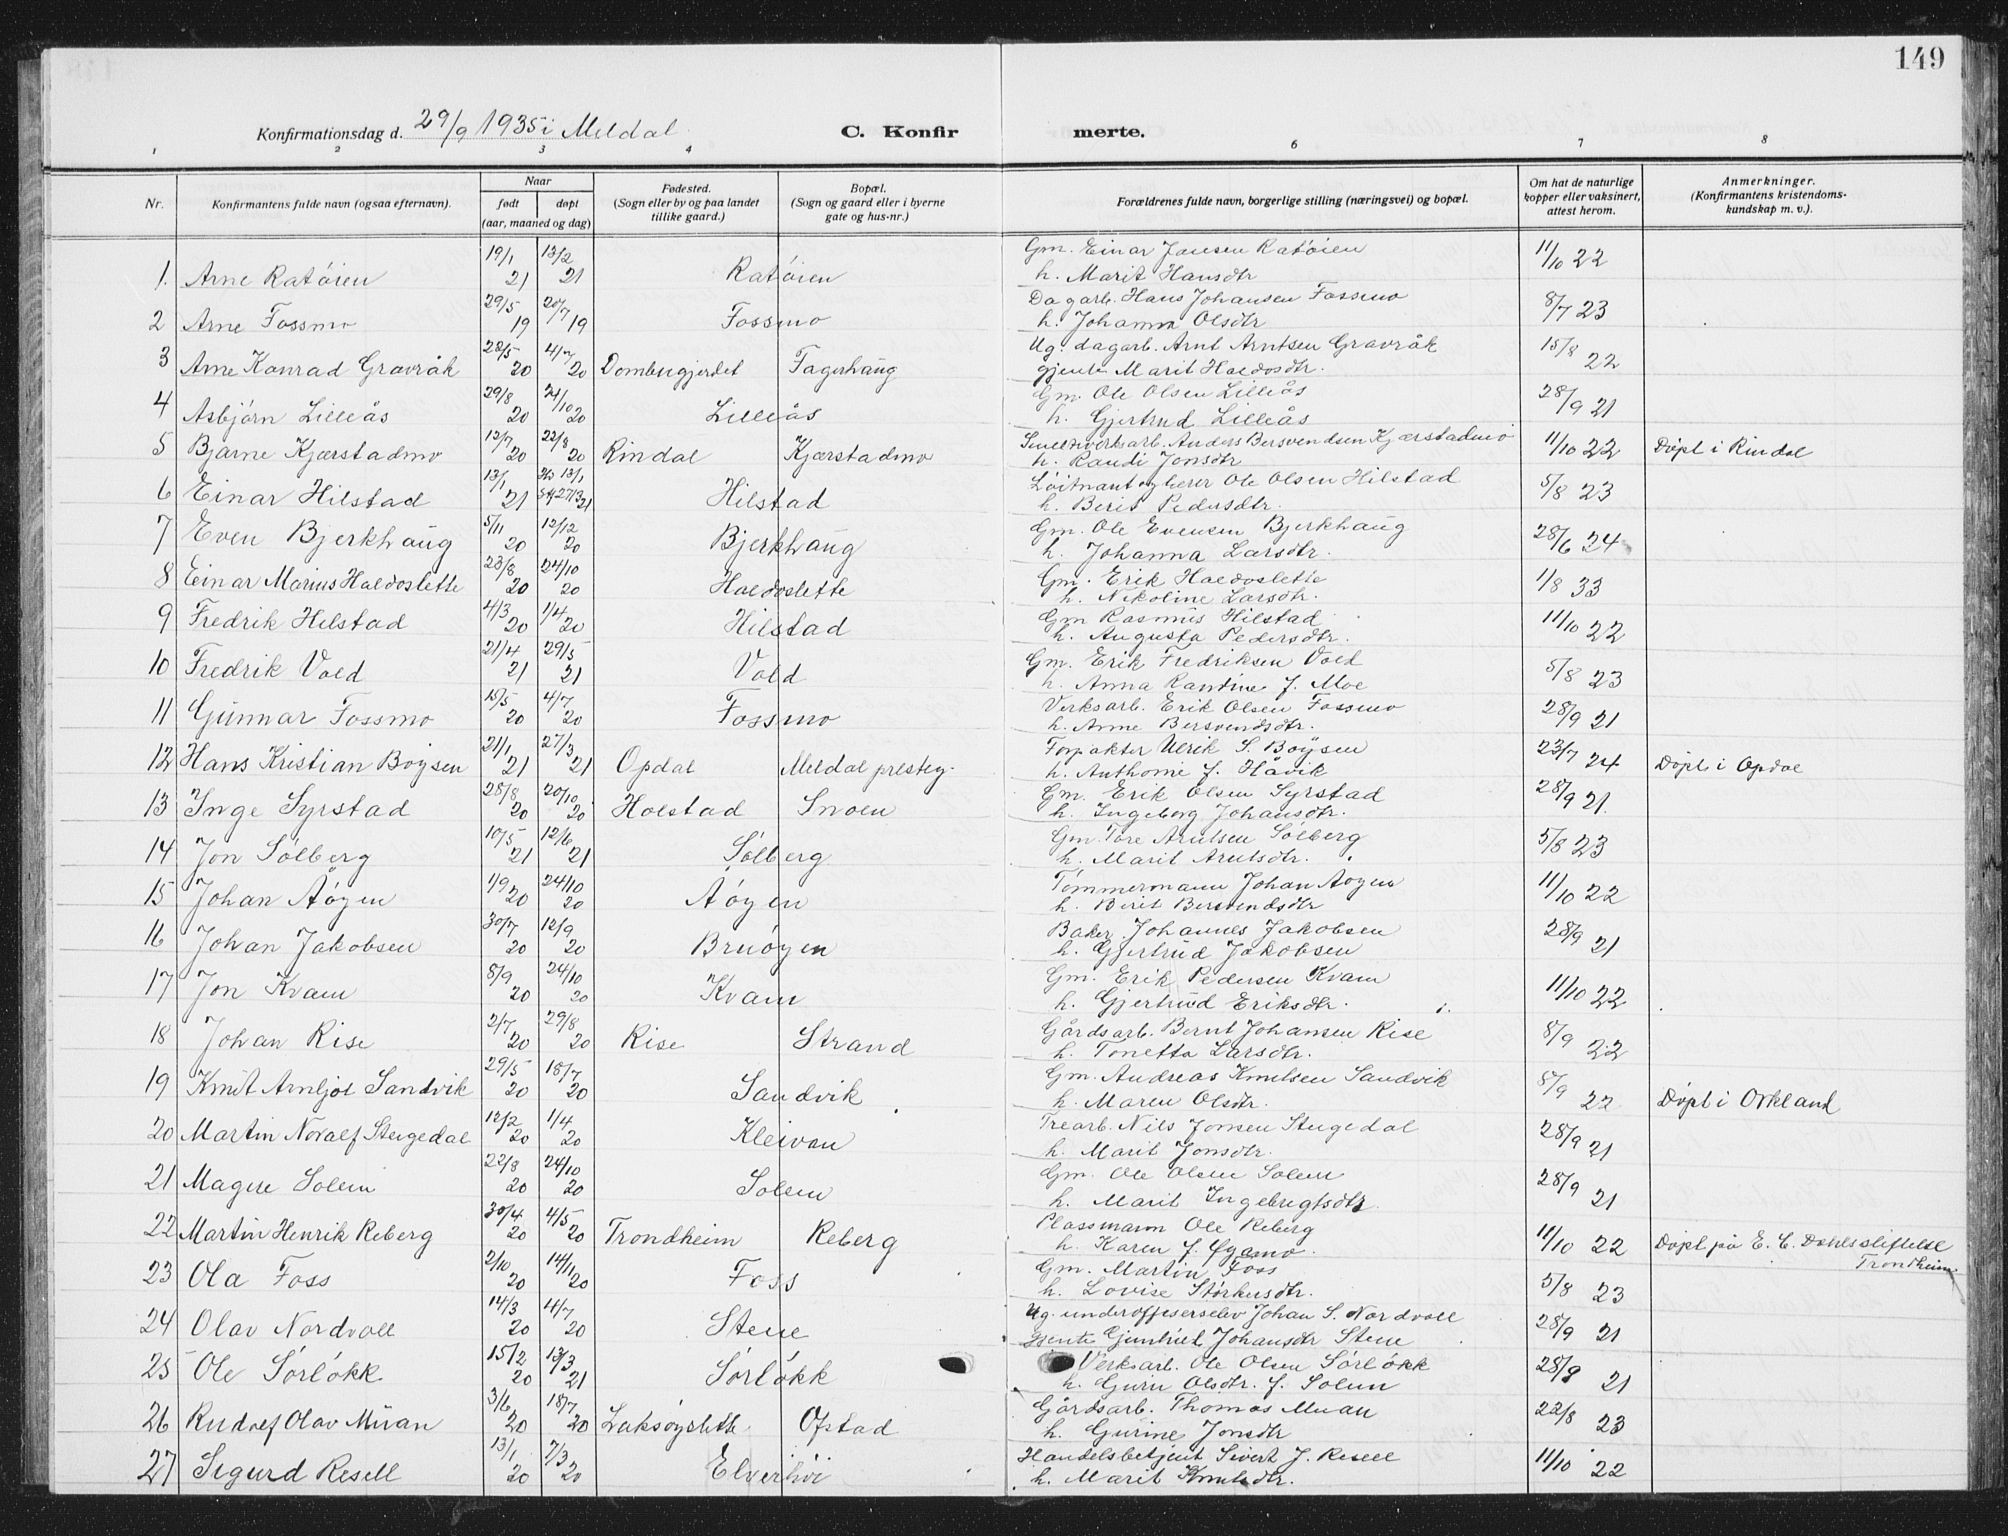 149
Konfirmationsdag d. 29/9 1935 i Meldal C. Konfirmerte.
1 2 3 4 6 7 8
Nr. Konfirmantens fulde navn (ogsaa efternavn). Naar født døpt (aar, maaned og dag) Fødested. (Sogn eller by og paa landet tillike gaard.) Bopæl. (Sogn og gaard eller i byerne gate og hus-nr.) Forældrenes fulde navn, borgerlige stilling (næringsvei) og bopæl. Om hat de naturlige kopper eller vaksinert, attest herom. Anmerkninger. (Konfirmantens kristendomskundskap m. v.).
1. Arne Ratøien 19/1 21 13/2 21 Ratøien Gm. Einar Jansen Ratøien 11/10 22
h. Marit Hansdtr
2 Arne Fossmo 29/5 19 20/7 19 Fossmo Dagarb. Hans Johansen Fossmo 8/7 23
h. Johanna Olsdtr
3 Arne Konrad Gravråk 28/5 20 4/7 20 Dombugjerdet Fagerhaug Ug. dagarb. Arnt Arntsen Gravråk 15/8 22
gjente Marit Haldosdtr.
4 Asbjørn Lilleås 29/8 20 24/10 20 Lilleås Gm. Ole Olsen Lilleås 28/9 21
h. Gjertrud Lilleås
5 Bjarne Kjærstadmo 12/7 20 22/8 20 Rindal Kjærstadmo Smelteverksarb. Anders Bersvendsen Kjærstadmo 11/10 22 Døpt i Rindal
h. Randi Jonsdtr
6 Einar Hilstad 13/1 21 13/1 27/3 21 Hilstad Løitnant og lærer Ole Olsen Hilstad 5/8 23
h. Berit Pedersdtr.
7 Even Bjerkhaug 5/11 20 12/12 20 Bjerkhaug Gm. Ole Evensen Bjerkhaug 28/6 24
h. Johanna Larsdtr.
8 Einar Marius Haldoslette 23/8 20 24/10 20 Haldoslette Gm. Erik Haldoslette 1/8 33
h. Nikoline Larsdtr.
9 Fredrik Hilstad 4/3 20 1/4 20 Hilstad Gm Rasmus Hilstad 11/10 22
h. Augusta Pedersdtr.
10 Fredrik Vold 21/4 21 29/5 21 Vold Gm. Erik Fredriksen Vold 5/8 23
h. Anna Randine f. Moe
11 Gunnar Fossmo 15/5 20 4/7 20 Fossmo Verksarb. Erik Olsen Fossmo 28/9 21
h. Anne Bersvendsdtr.
12 Hans Kristian Boysen 21/1 21 27/3 21 Opdal Meldal presteg. Forpakter Ulrik S. Boysen 23/7 24 Døpt i Opdal
h. Anthonie f. Håvik
13 Inge Syrstad 28/8 20 20/10 20 Holstad Snoen Gm. Erik Olsen Syrstad 28/9 21.
h. Ingeborg Johansdtr.
14 Jon Solberg 10/5 21 12/6 21 Solberg Gm. Tore Arntsen Solberg 5/8 23
h. Marit Arntsdtr.
15 Johan Aøyen 1/9 20 24/10 20 Aøyen Tømmermann Johan Aøyen 11/10 22
h. Berit Bersvendsdtr
16 Johan Jakobsen 30/7 20 12/9 20 Bruøyen Baker Johannes Jakobsen 28/9 21
h. Gjertrud Jakobsen
17 Jon Kvam 8/9 20 24/10 20 Kvam Gm. Erik Pedersen Kvam 11/10 22
h. Gjertrud Eriksdtr.
18 Johan Rise 2/7 20 29/8 20 Rise Strand Gårdsarb. Bernt Johansen Rise 8/9 22
h. Tonetta Larsdtr.
19 Knut Arnljot Sandvik 29/5 20 18/7 20 Sandvik Gm. Andreas Knutsen Sandvik 8/9 22 Døpt i Orkland
h. Maren Olsdtr.
20 Martin Noralf Stugedal 12/2 20 1/4 20 Kleivan Trearb. Nils Jonsen Stugedal 28/9 21
h. Marit Jonsdtr.
21 Magne Solem 22/8 20 24/10 20 Solem Gm. Ole Olsen Solem 28/9 21
h. Marit Ingebrigtsdtr.
22 Martin Henrik Reberg 30/4 20 4/5 20 Trondheim Reberg Plassmann Ole Reberg 11/10 22 Døpt på E. C. Dahls stiftelse
h. Karen f. Øyamo. Trondheim
23 Ola Foss 2/10 20 14/11 20 Foss Gm. Martin Foss 5/8 23
h. Lovise Størkersdtr.
24 Olav Nordvoll 14/3 20 4/7 20 Stene Ug. underoffiserselev Johan S. Nordvoll 28/9 21
gjente Gunhild Johansdtr Stene
25 Ole Sørløkk 15/2 20 13/3 21 Sørløkk Verksarb. Ole Olsen Sørløkk 28/9 21
h. Guru Olsdtr. f. Solem
26 Rudolf Olav Muan 3/6 20 18/7 20 Laksøyslette Ofstad Gårdsarb. Thomas Muan 22/8 23
h. Gurine Jonsdtr
27 Sigurd Resell 13/1 20 7/3 20 Elverhøi Handelsbetjent Sivert J. Resell 11/10 22
h. Marit Knutsdtr.